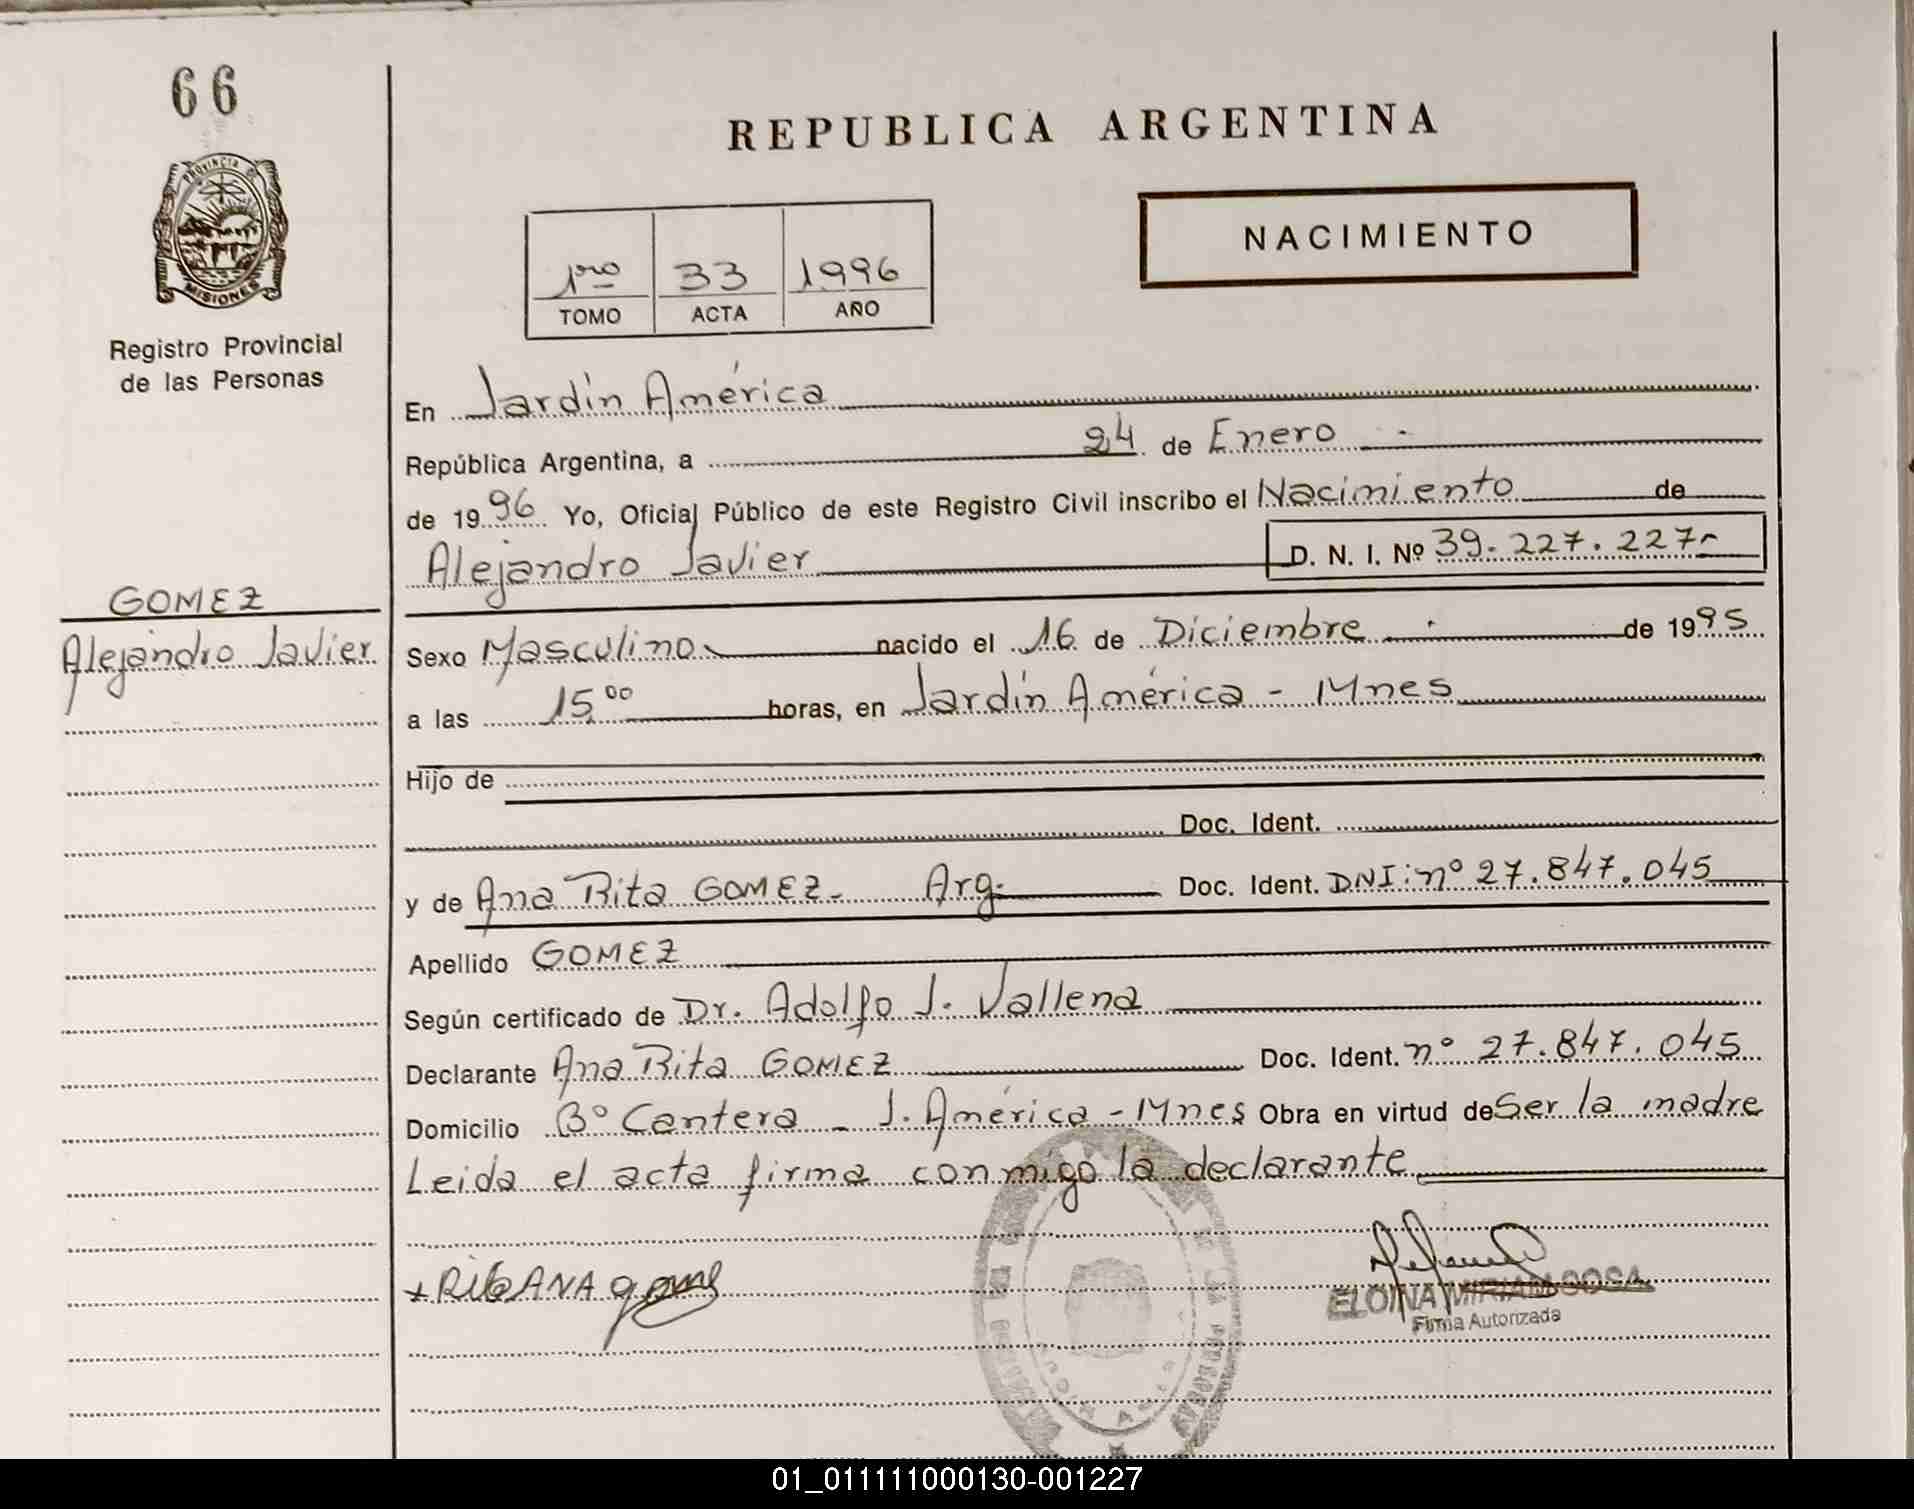 66
PROVINCIA DE
MISIONES
Registro Provincial
de las Personas
GOMEZ
Alejandro Javier
REPUBLICA ARGENTINA
1ro 33 1996
TOMO ACTA AÑO
NACIMIENTO
En Jardín América
República Argentina, a 24 de Enero
de 1996 Yo, Oficial Público de este Registro Civil inscribo el Nacimiento de
Alejandro Javier D. N. I. Nº 39.227.227
Sexo Masculino nacido el 16 de Diciembre de 1995
a las 15,00 horas, en Jardín América - Mnes
Hijo de
Doc. Ident.
y de Ana Rita GOMEZ - Arg. Doc. Ident. DNI: nº 27.847.045
Apellido GOMEZ
Según certificado de Dr. Adolfo J. Vallena
Declarante Ana Rita GOMEZ Doc. Ident. nº 27.847.045
Domicilio Bº Cantera - J. América - Mnes Obra en virtud de Ser la madre
Leida el acta firma conmigo la declarante
ELOINA MIRIAM SOSA
Firma Autorizada
01_011111000130-001227